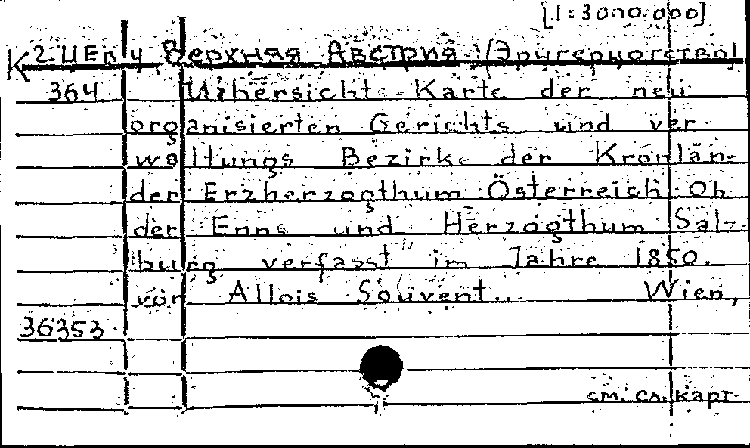 [1:3000.000]
К 2.ЦЕп/4 Верхняя Австрия /Эрцгерцогство/
364 Uibersicht Karte der neu
organisierten Gerichts und ver-
waltungs Bezirke der Kronlän-
der Erzherzogthum Österreich ob
der Enns und Herzogthum Salz-
burg verfasst im Jahre 1850.
von Allois Souvent.. Wien,
36353
см. сл. карт.